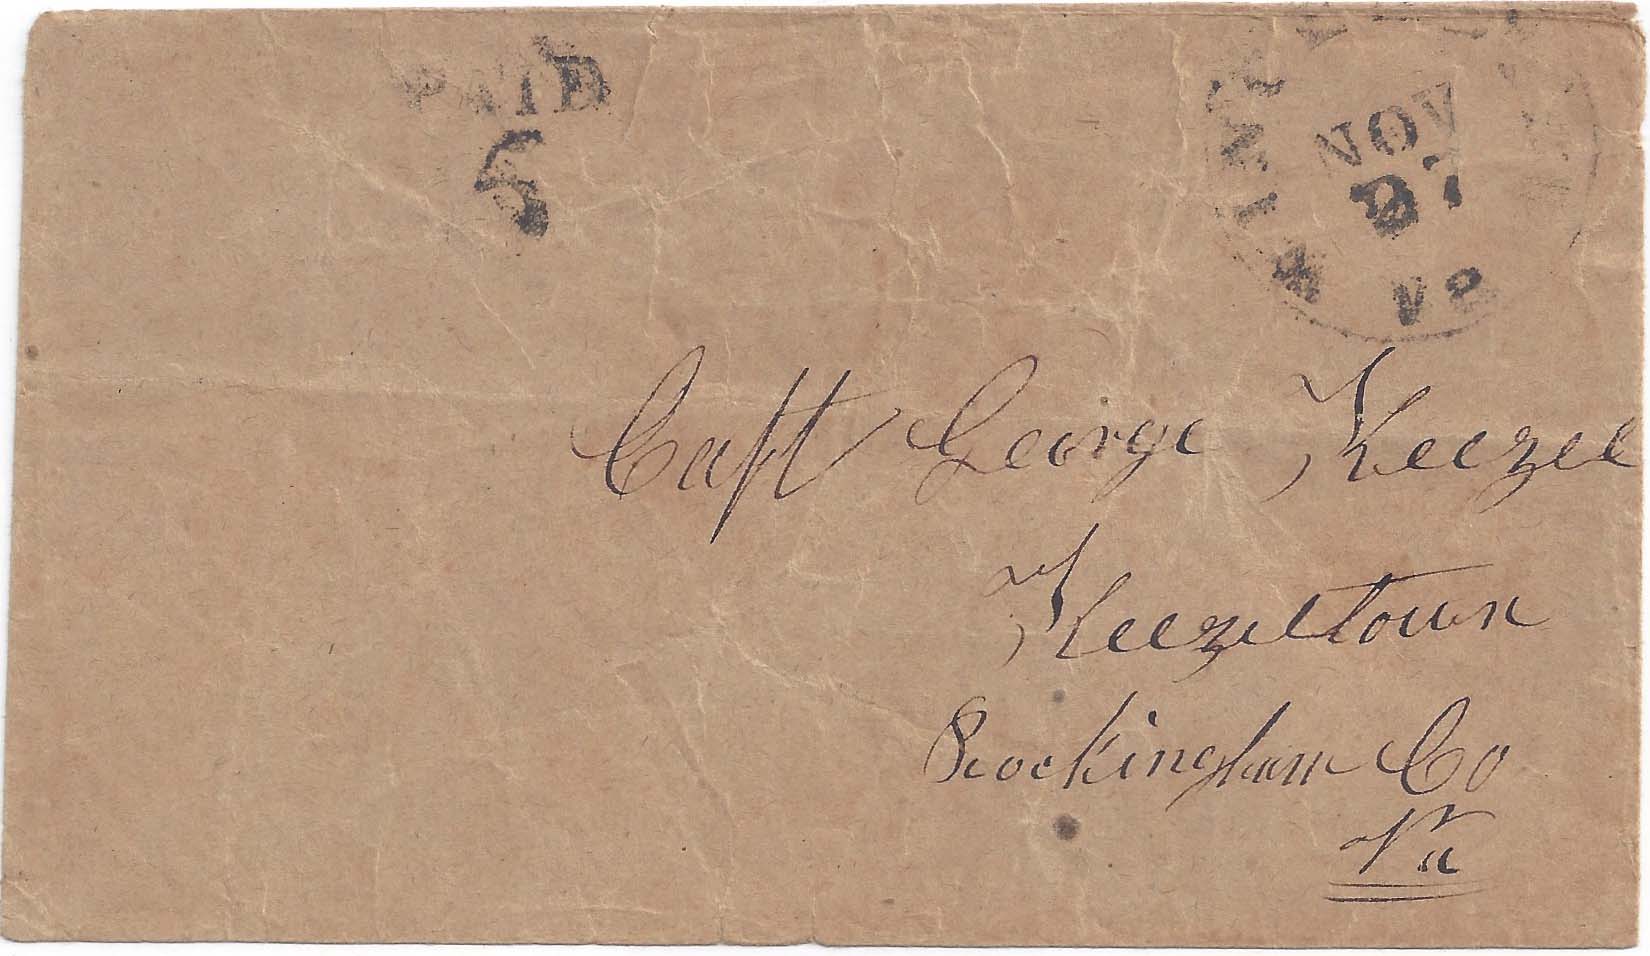 PAID
5
NOV
27
Va
Capt George Keezel
Keezeltown
Rockingham Co
Va